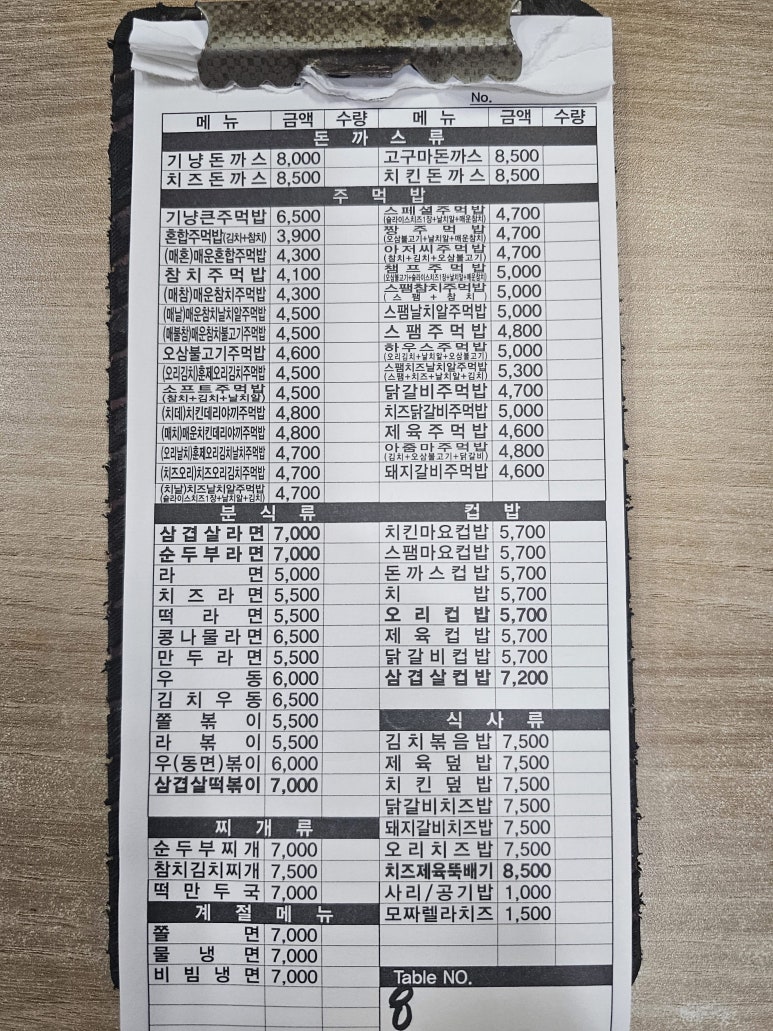 No.
메 뉴 금액 수량 메 뉴 금액 수량
돈 까 스 류
기냥돈까스 8,000 고구마돈까스 8,500
치즈돈까스 8,500 치킨돈까스 8,500
주 먹 밥
기냥큰주먹밥 6,500 스페셜주먹밥 (슬라이스치즈1장+날치알+매운참치) 4,700
혼합주먹밥(김치+참치) 3,900 짱주먹밥 (오삼불고기+날치알+매운참치) 4,700
(매혼)매운혼합주먹밥 4,300 아저씨주먹밥 (참치+김치+오삼불고기) 4,700
참치주먹밥 4,100 챔프주먹밥 (오삼불고기+슬라이스치즈1장+날치알+매운참치) 5,000
(매참)매운참치주먹밥 4,300 스팸참치주먹밥 (스팸+참치) 5,000
(매날)매운참치날치알주먹밥 4,500 스팸날치알주먹밥 5,000
(매불참)매운참치불고기주먹밥 4,500 스팸주먹밥 4,800
오삼불고기주먹밥 4,600 하우스주먹밥 (오리김치+날치알+오삼불고기) 5,000
(오리김치)훈제오리김치주먹밥 4,500 스팸치즈날치알주먹밥 (스팸+치즈+날치알+김치) 5,300
소프트주먹밥 (참치+김치+날치알) 4,500 닭갈비주먹밥 4,700
(치데)치킨데리야끼주먹밥 4,800 치즈닭갈비주먹밥 5,000
(매치)매운치킨데리야끼주먹밥 4,800 제육주먹밥 4,600
(오리날치)훈제오리김치날치주먹밥 4,700 아줌마주먹밥 (김치+오삼불고기+닭갈비) 4,800
(치즈오리)치즈오리김치주먹밥 4,700 돼지갈비주먹밥 4,600
(치날)치즈날치알주먹밥 (슬라이스치즈1장+날치알+김치) 4,700
분 식 류 컵 밥
삼겹살라면 7,000 치킨마요컵밥 5,700
순두부라면 7,000 스팸마요컵밥 5,700
라 면 5,000 돈까스컵밥 5,700
치즈라면 5,500 치 밥 5,700
떡 라 면 5,500 오리컵밥 5,700
콩나물라면 6,500 제육컵밥 5,700
만두라면 5,500 닭갈비컵밥 5,700
우 동 6,000 삼겹살컵밥 7,200
김치우동 6,500
쫄 볶 이 5,500 식 사 류
라 볶 이 5,500 김치볶음밥 7,500
우(동면)볶이 6,000 제육덮밥 7,500
삼겹살떡볶이 7,000 치킨덮밥 7,500
닭갈비치즈밥 7,500
찌 개 류 돼지갈비치즈밥 7,500
순두부찌개 7,000 오리치즈밥 7,500
참치김치찌개 7,500 치즈제육뚝배기 8,500
떡만두국 7,000 사리/공기밥 1,000
계 절 메 뉴 모짜렐라치즈 1,500
쫄 면 7,000
물 냉 면 7,000
비빔냉면 7,000 Table NO.
8